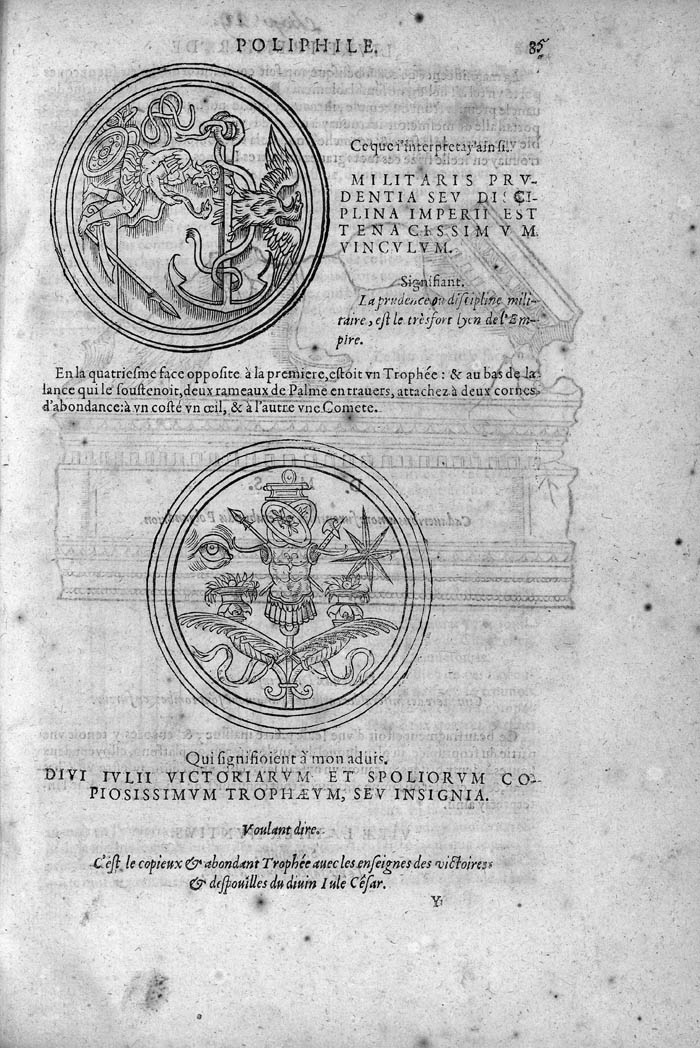 POLIPHILE.
85
Ce que i'interpretay ainsi.
MILITARIS PRV-
DENTIA SEV DISCI-
PLINA IMPERII EST
TENACISSIMVM
VINCVLVM.
Signifiant.
La prudence ou discipline mili-
taire, est le tresfort lyen de l'Em-
pire.
En la quatriesme face opposite à la premiere, estoit vn Trophée : & au bas de la
lance qui le soustenoit, deux rameaux de Palme en trauers, attachez à deux cornes
d'abondance: à vn costé vn œil, & à l'autre vne Comete.
Qui signifioient à mon aduis.
DIVI IVLII VICTORIARVM ET SPOLIORVM CO-
PIOSISSIMVM TROPHÆVM, SEV INSIGNIA.
Voulant dire.
C'est le copieux & abondant Trophée auec les enseignes des victoires
& despouilles du diuin Iule César.
Y